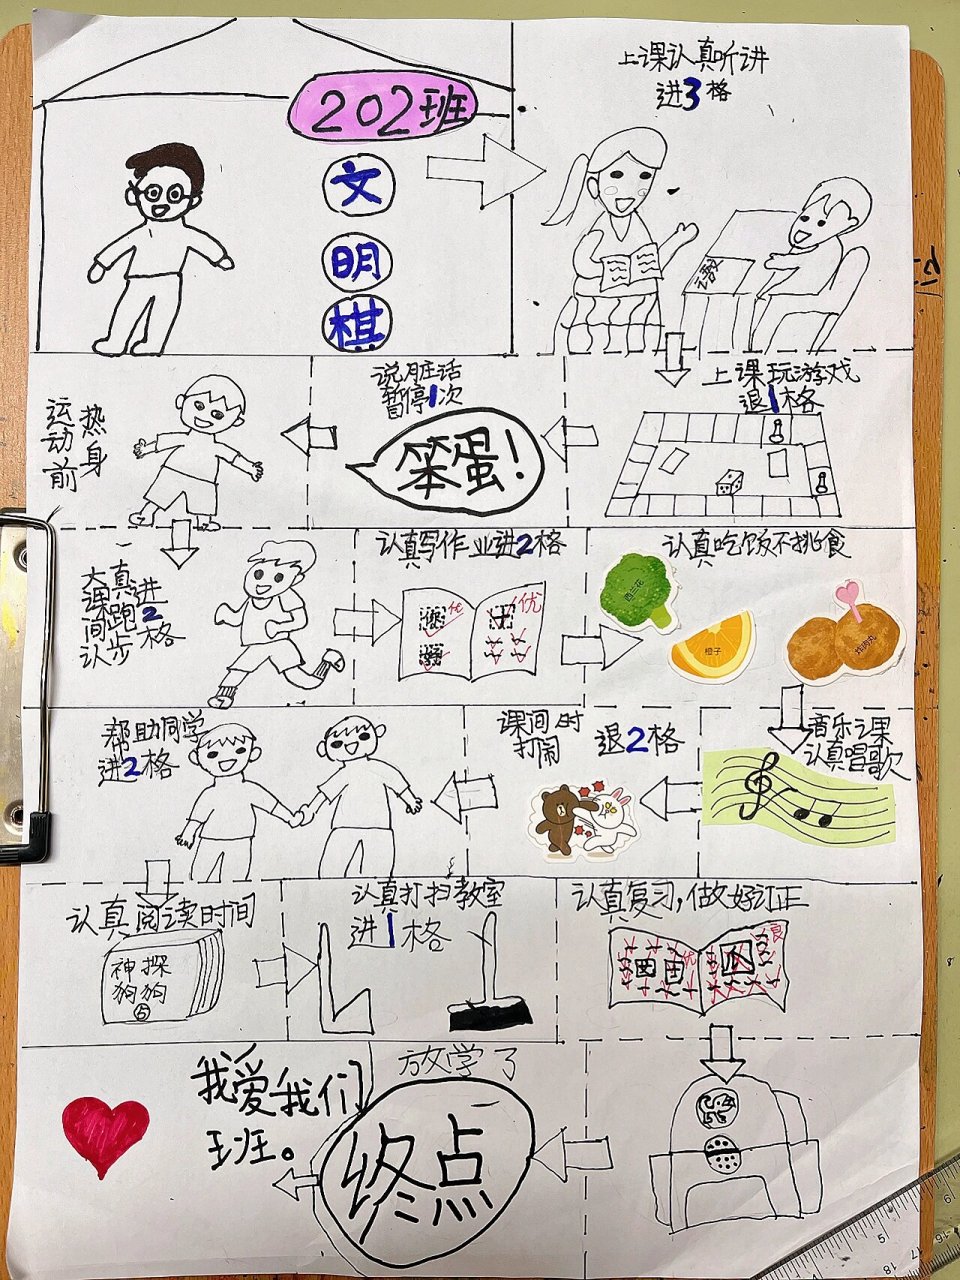 202班
文
明
棋
上课认真听讲
进3格
语文
上课玩游戏
退1格
说脏话
暂停1次
笨蛋!
热身
运动前
大课间认真跑步进2格
认真写作业进2格
优
优
认真吃饭不挑食
西兰花
橙子
炸鸡丸
音乐课
认真唱歌
课间时
打闹
退2格
帮助同学
进2格
认真阅读时间
神探
狗狗
⑤
认真打扫教室
进1格
认真复习,做好订正
优
良
放学了
终点
我爱我们
班。